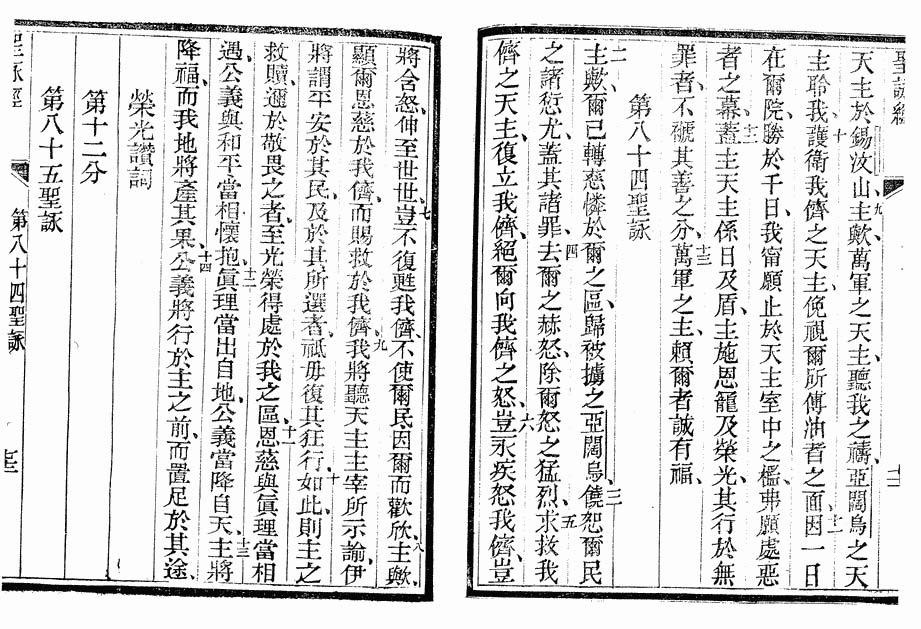 聖詠經
十二
天主於錫汶山、九主歟萬軍之天主、聽我之禱、亞闊烏之天
主聆我、十護衛我儕之天主、俛視爾所傅油者之面、十一因一日
在爾院勝於千日、我甯願止於天主室中之檻、弗願處惡
者之幕、十二蓋主天主係日及盾、主施恩寵及榮光、其行於無
罪者、不褫其善之分、十三萬軍之主、賴爾者誠有福、
第八十四聖詠
二主歟爾已轉慈憐於爾之區、歸被擄之亞闊烏、三僥恕爾民
之諸愆尤、蓋其諸罪、四去爾之赫怒、除爾怒之猛烈、五求救我
儕之天主、復立我儕、絕爾向我儕之怒、六豈永疾怒我儕、豈
將含怒、伸至世世、七豈不復甦我儕、不使爾民因爾而歡欣、八主歟
顯爾恩慈於我儕、而賜救於我儕、九我將聽天主主宰所示諭、伊
將謂平安於其民、及於其所選者、祗毋復其狂行、十如此則主之
救贖、邇於敬畏之者、至光榮得處於我之區、十一恩慈與眞理當相
遇、公義與和平當相懷抱、十二眞理當出自地、公義當降自天、十三主將
降福、而我地將產其果、十四公義將行於主之前、而置足於其途、
榮光讚詞
第十二分
第八十五聖詠
聖詠經
第八十四聖詠